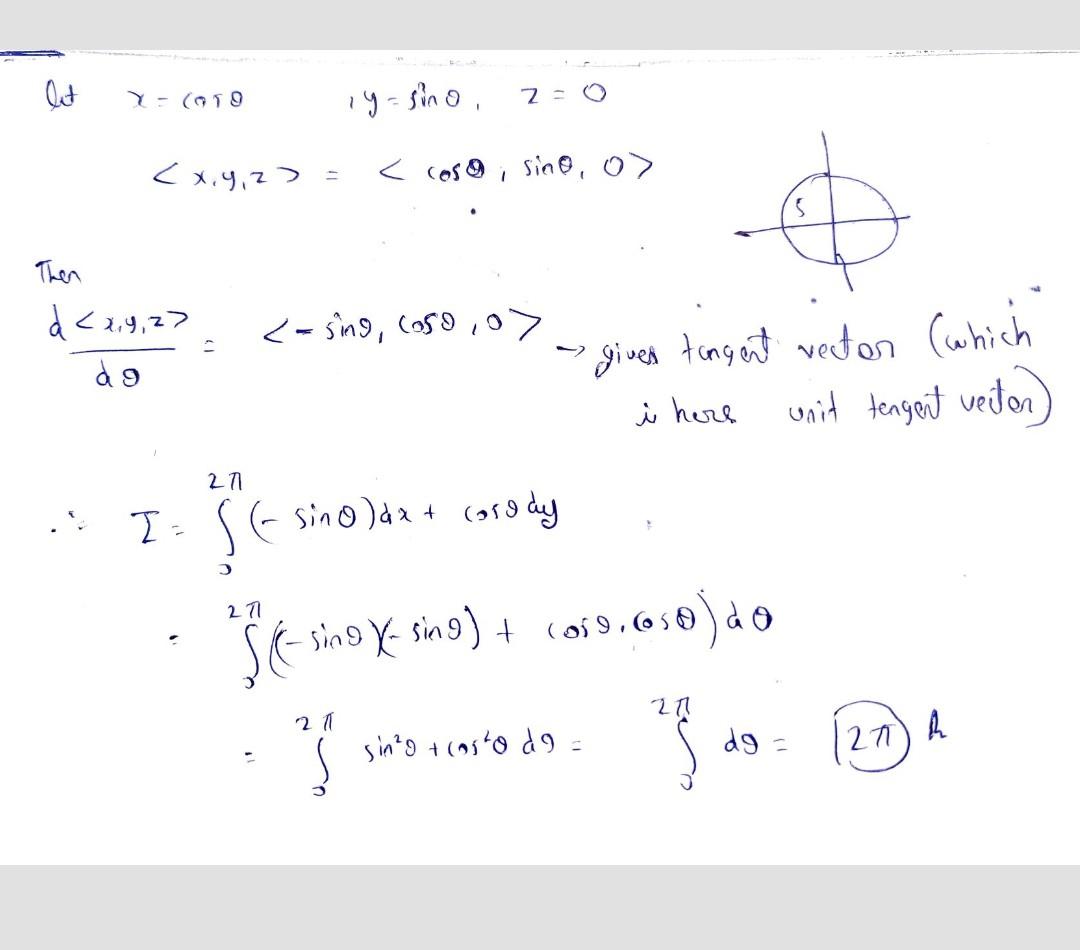 let x = cosθ , y = sinθ , z = 0
<x,y,z> = < cosθ , sinθ, 0>
S
Then
d<x,y,z>/dθ = <-sinθ, cosθ, 0> → gives tangent vector (which
is here unit tengent vector)
∴ I = ∫₀^2π (-sinθ)dx + cosθ dy
= ∫₀^2π ((-sinθ)(-sinθ) + cosθ.cosθ) dθ
= ∫₀^2π sin²θ + cos²θ dθ = ∫₀^2π dθ = 2π